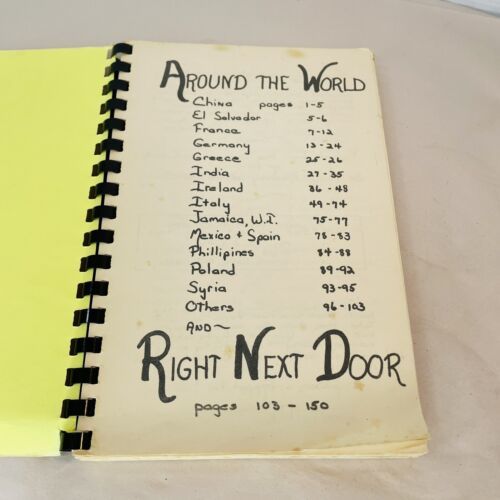 AROUND THE WORLD
China pages 1-5
El Salvador 5-6
France 7-12
Germany 13-24
Greece 25-26
India 27-35
Ireland 36-48
Italy 49-74
Jamaica, W.I. 75-77
Mexico & Spain 78-83
Phillipines 84-88
Poland 89-92
Syria 93-95
Others 96-103
AND~
RIGHT NEXT DOOR
pages 103-150